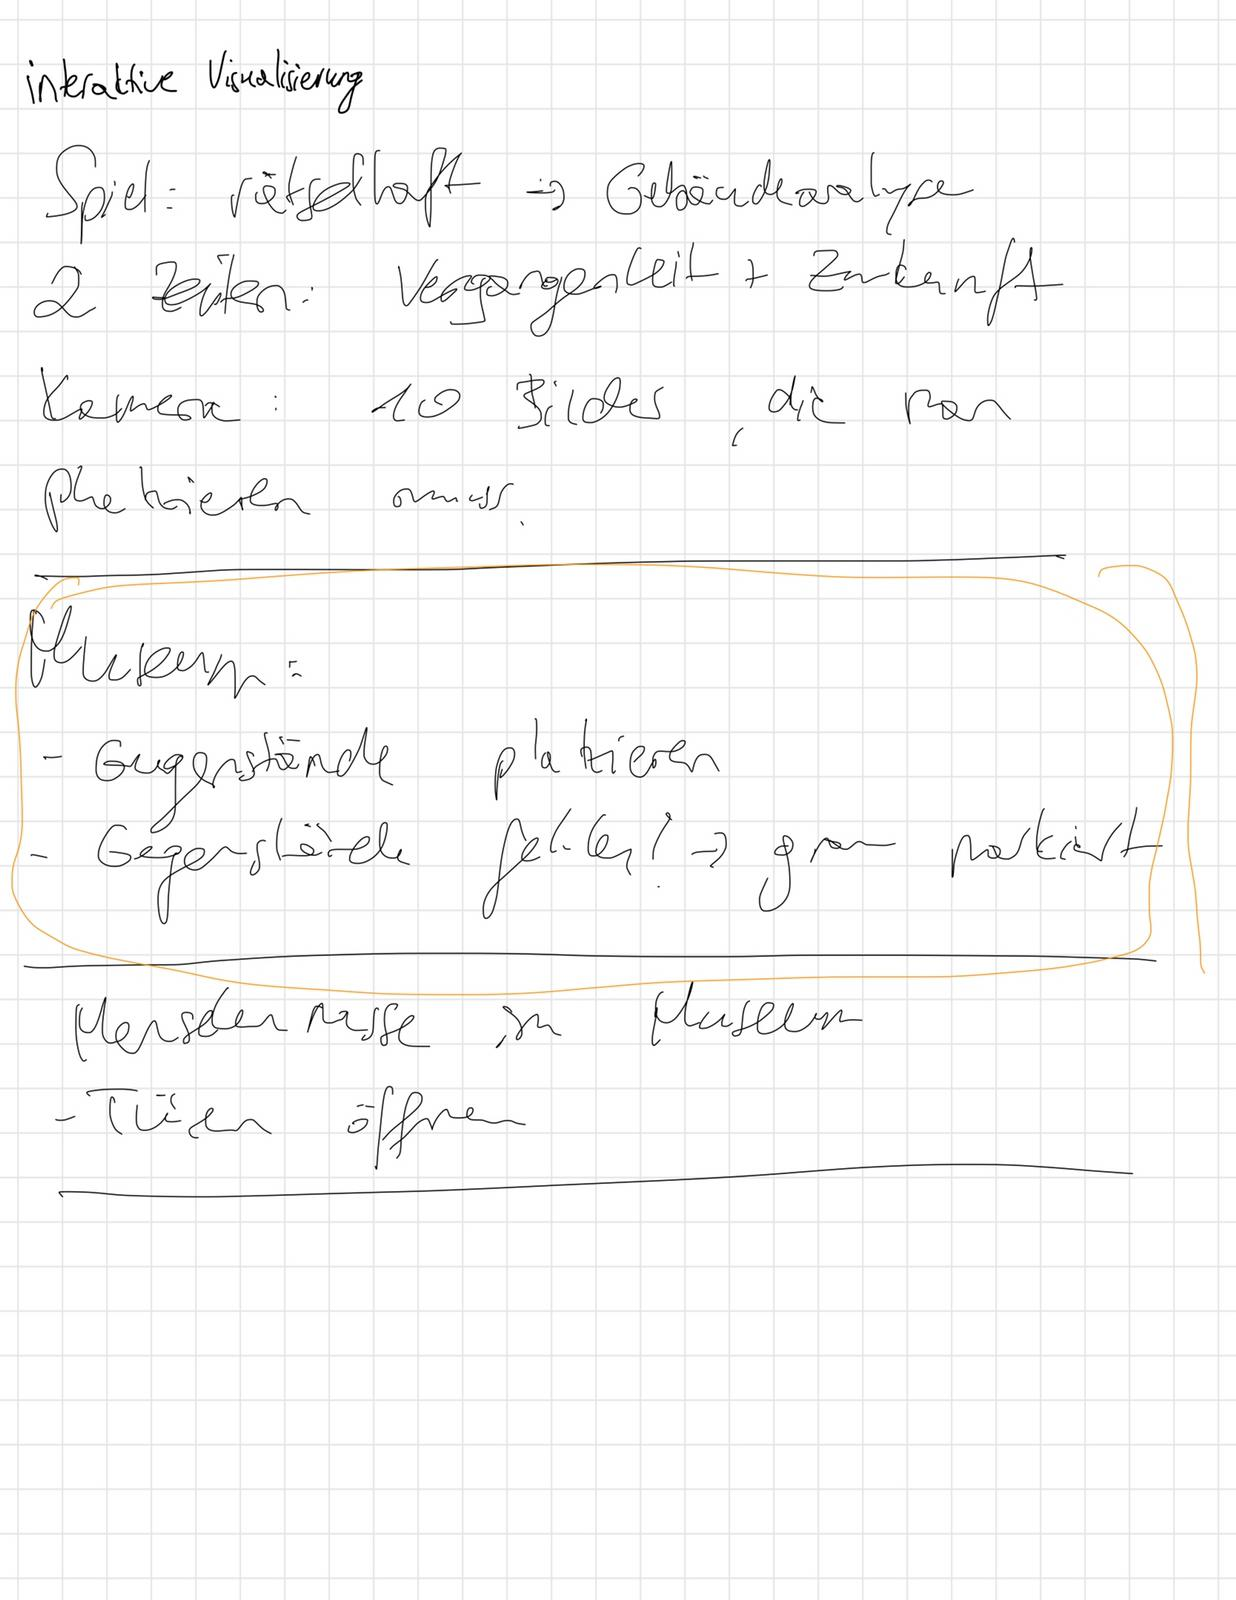 interaktive Visualisierung
Spiel: rätselhaft => Gebäudeanalyse
2 Zeiten: Vergangenheit + Zukunft
Kamera: 10 Bilder, die man
platzieren muss.
Museum:
- Gegenstände platzieren
- Gegenstände fehlen! -> grau markiert
Menschenmasse im Museum
- Türen öffnen